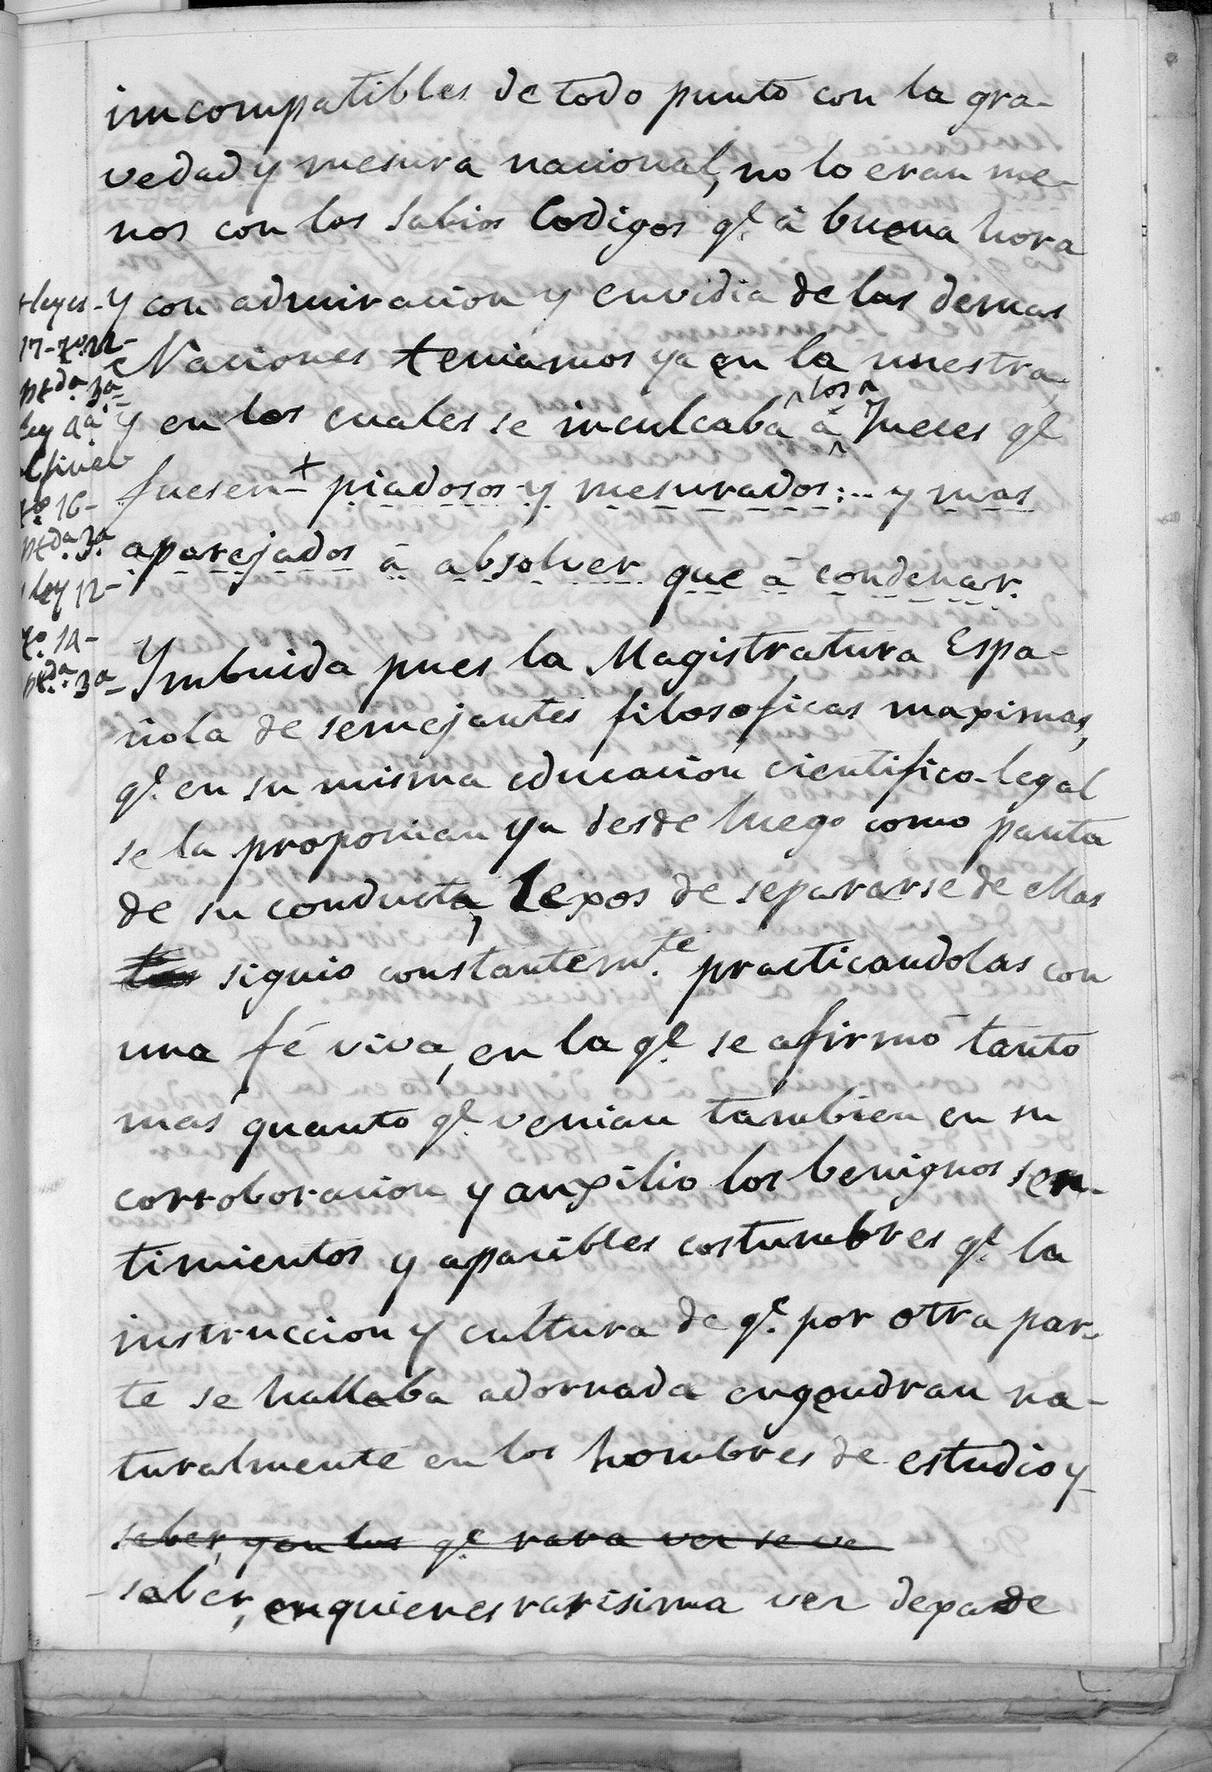 imcompatibles de todo punto con la gra-
vedad y mesura nacional, no lo eran me-
nos con los Sabios Codigos q.e à buena hora
y con admiracion y envidia de las demas
Naciones teniamos ya en la nuestra,
y en los cuales se inculcaba à los Jueces q.e
fuesen + piadosos y mesurados:.. y mas
aparejados à absolver que à condenar.
Ymbuida pues la Magistratura Espa-
ñola de semejantes filosoficas maximas,
q.e en su misma educacion cientifico-legal
se la proponian ya desde luego como pauta
de su conducta, lexos de separarse de ellas
las siguio constantem.te practicandolas con
una fé viva, en la q.e se afirmó tanto
mas quanto q.e venian tambien en su
corroboracion y auxilio los benignos sen-
timientos y apacibles costumbres q.e la
instruccion y cultura de q.e por otra par-
te se hallaba adornada engendran na-
turalmente en los hombres de estudio y
saber, y en los q.e rara vez se ve
saber, en quienes rarisima vez dexa de
+ leyes
17-
Ptda 3a
ley 4a
al final
to 16-
Ptda 3a
y ley 12-
to 14-
Ptda 3a